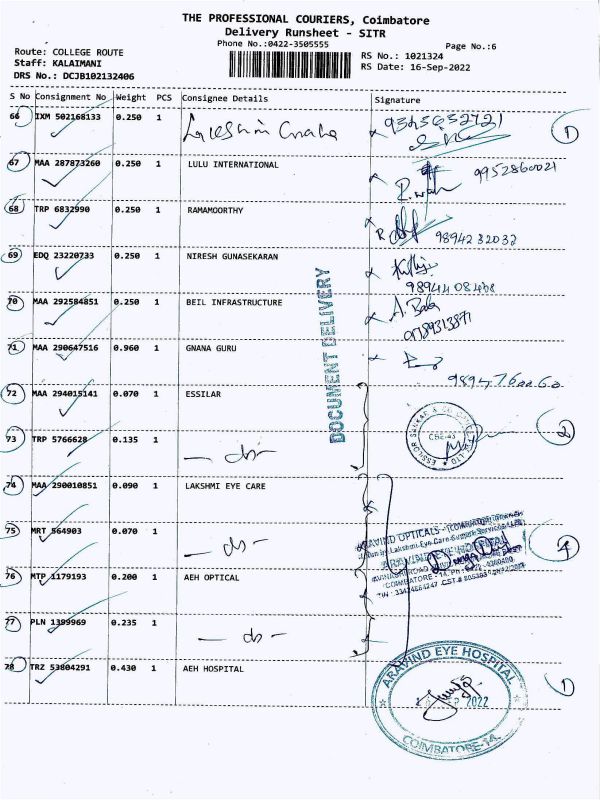 THE PROFESSIONAL COURIERS, Coimbatore
Delivery Runsheet - SITR
Phone No.:0422-3505555
Page No.:6
Route: COLLEGE ROUTE
Staff: KALAIMANI
DRS No.: DCJB102132406
RS No.: 1021324
RS Date: 16-Sep-2022
S No Consignment No Weight PCS Consignee Details Signature
66 IXM 502168133 0.250 1
67 MAA 287873260 0.250 1 LULU INTERNATIONAL 9952860021
68 TRP 6832990 0.250 1 RAMAMOORTHY 9894232032
69 EDQ 23220733 0.250 1 NIRESH GUNASEKARAN
70 MAA 292584851 0.250 1 BEIL INFRASTRUCTURE A. Bala
71 MAA 290647516 0.960 1 GNANA GURU
DOCUMENT DELIVERY
72 MAA 294015141 0.070 1 ESSILAR
73 TRP 5766628 0.135 1 - do -
CBE-43
2
74 MAA 290010851 0.090 1 LAKSHMI EYE CARE
75 MRT 564903 0.070 1 - do -
ARAVIND OPTICALS
ARAVIND EYE HOSPITAL
4
76 MTP 1179193 0.200 1 AEH OPTICAL
77 PLN 1399969 0.235 1 - do -
78 TRZ 53804291 0.430 1 AEH HOSPITAL
ARAVIND EYE HOSPITAL
SEP 2022
COIMBATORE-14.
1